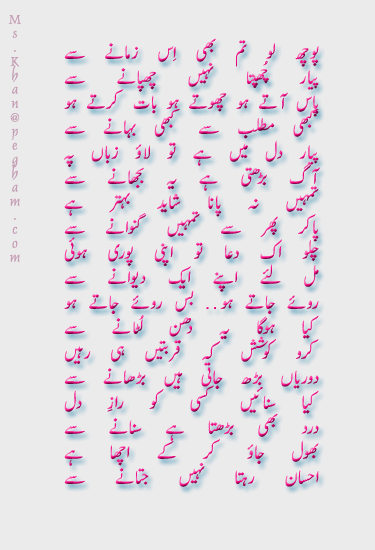 پوچھ لو تم بھی اِس زمانے سے
پیار چُھپتا نہیں چھپانے سے
پاس آتے ہو چھوتے ہو بات کرتے ہو
کبھی مطلب سے کبھی بہانے سے
پیار دل میں ہے تو لاؤ زباں پہ
آگ بڑھتی ہے یہ بجھانے سے
تمہیں نہ پانا شاید بہتر ہے
پاکر پھر سے تمہیں گنوانے سے
چلو اک دعا تو اپنی پوری ہوئی
مل لئے اپنے ایک دیوانے سے
روئے جاتے ہو.. بس روئے جاتے ہو
کیا ہوگا یہ دھن لٹانے سے
کرو کوشش کہ قربتیں ہی رہیں
دوریاں بڑھ جاتی ہیں بڑھانے سے
کیا سنائیں کسی کو رازِ دل
درد بھی بڑھتا ہے سنانے سے
بھول جاؤ کر کے اچھا ہے
احسان رہتا نہیں جتانے سے
Ms.Khan@pegham.com